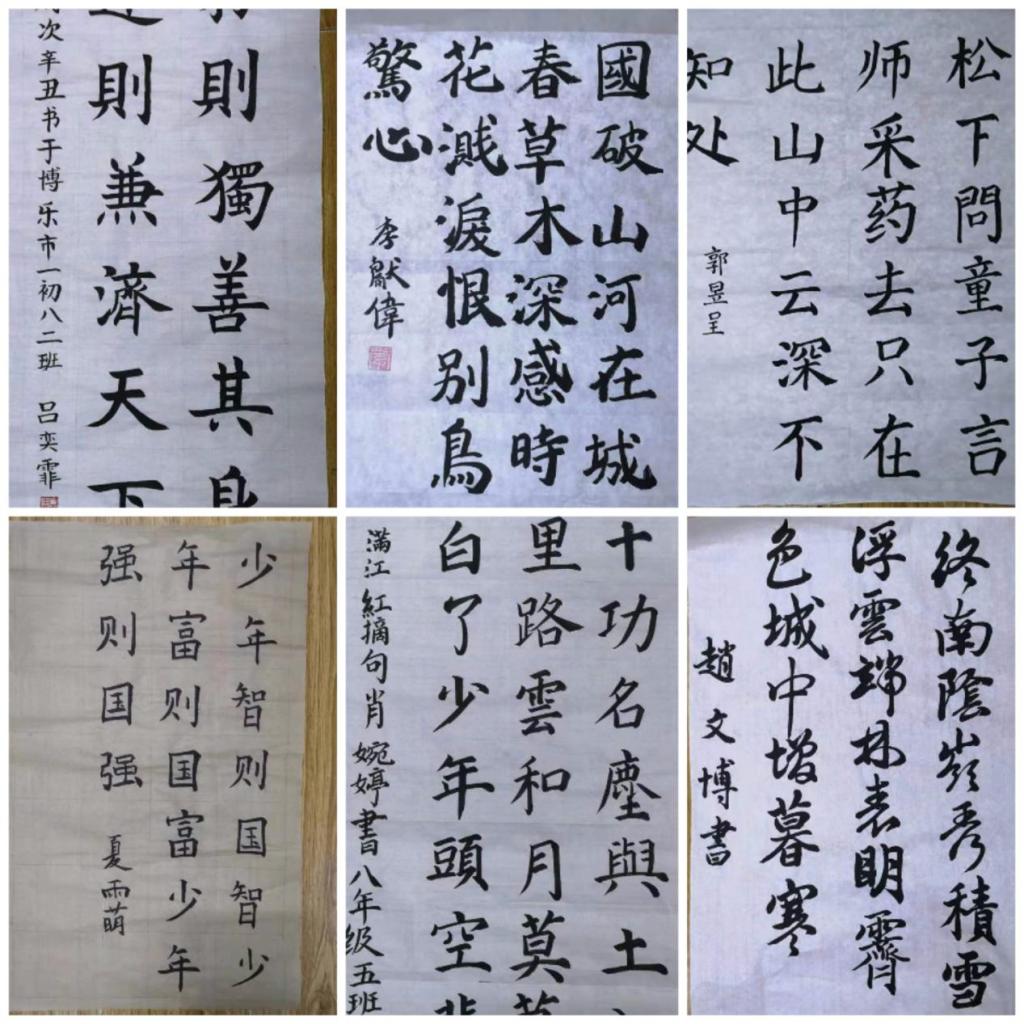 則獨善其身
則兼濟天下
次辛丑书于博乐市一初八二班 吕奕霏
國破山河在城
春草木深感時
花溅淚恨别鳥
驚心
李獻偉
松下問童子言
师采药去只在
此山中云深不
知处
郭昱呈
少年智则国智少
年富则国富少年
强则国强
夏雨萌
十功名塵與土
里路雲和月莫
白了少年頭空
满江紅摘句肖婉婷書八年级五班
终南陰嶺秀積雪
浮雲端林表明霽
色城中增暮寒
趙文博書